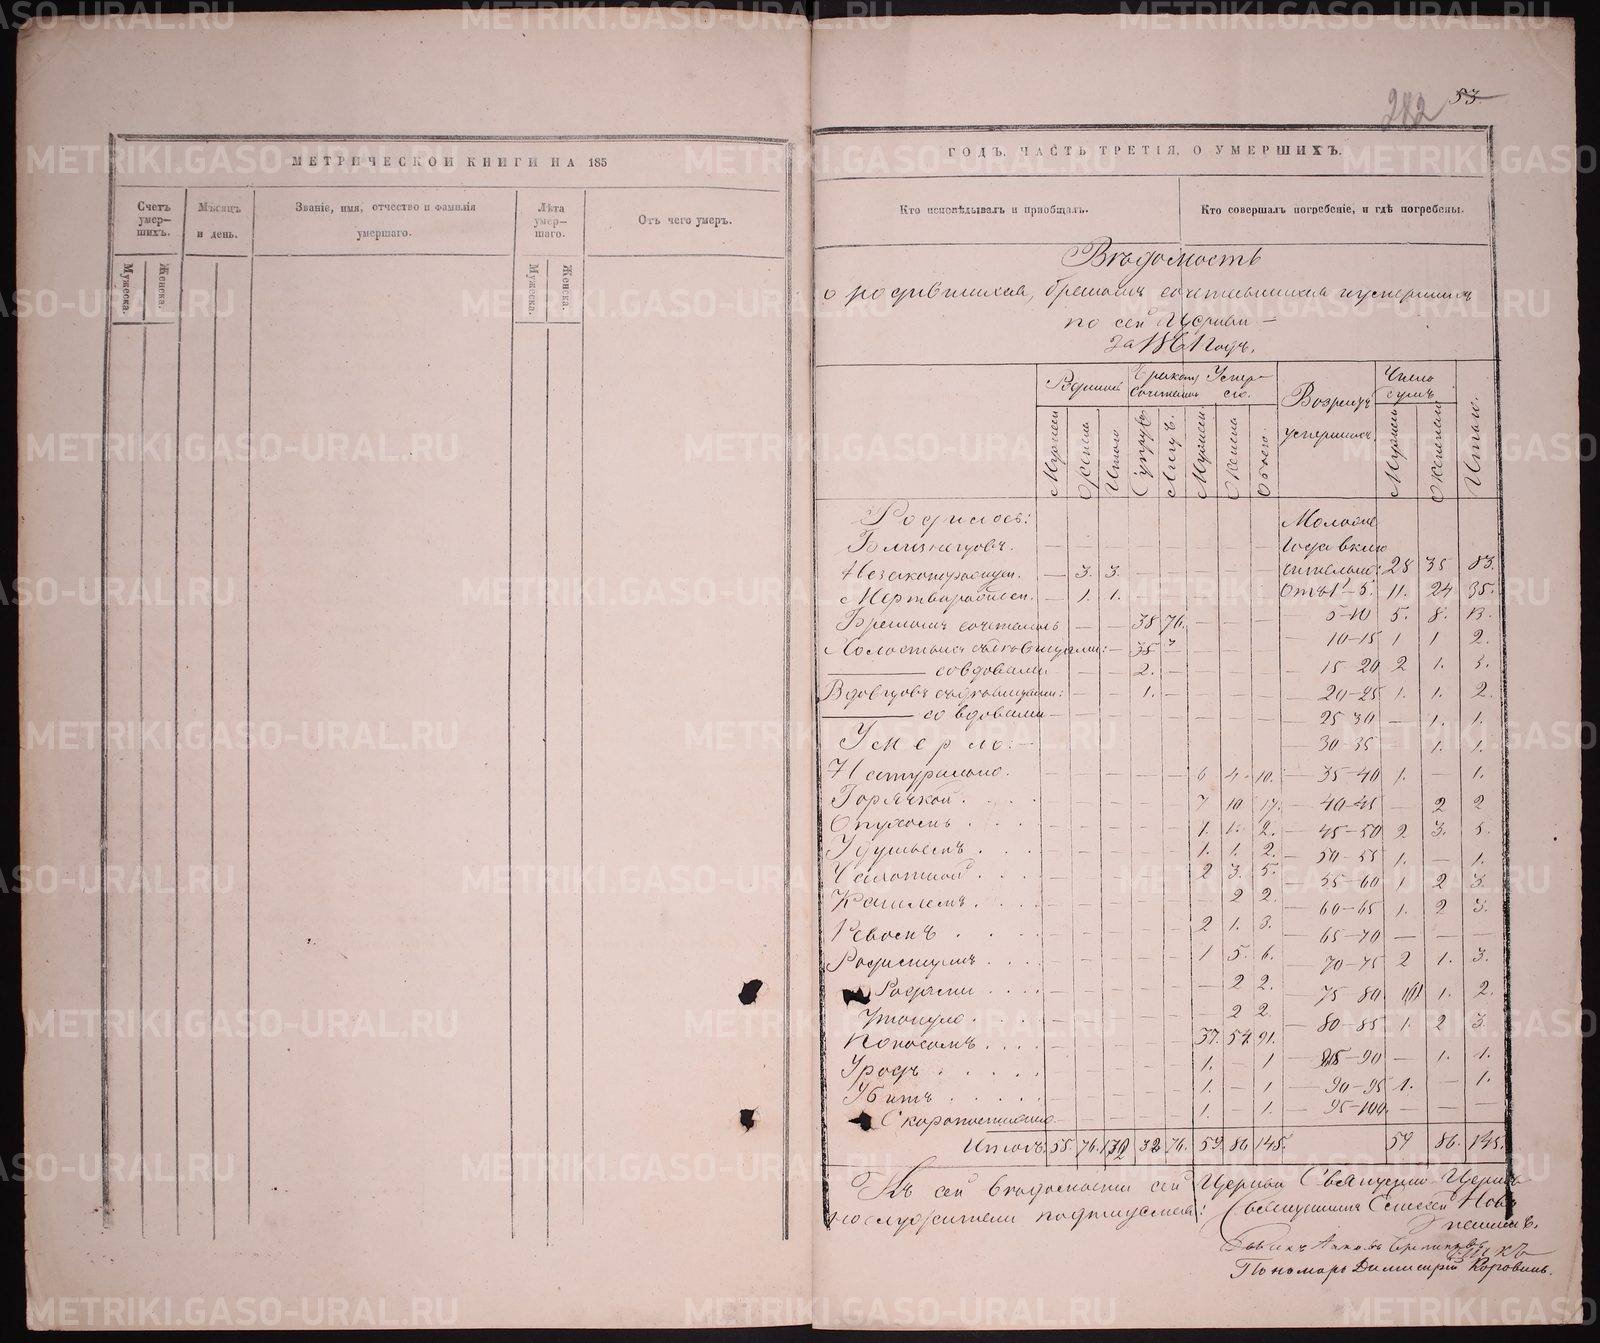 282 53.
МЕТРИЧЕСКОЙ КНИГИ НА 185
Счетъ умер-шихъ.
Мужеска.
Женска.
Мѣсяцъ и день.
Званіе, имя, отчество и фамилія умершаго.
Лѣта умер-шаго.
Мужеска.
Женска.
Отъ чего умеръ.
ГОДЪ, ЧАСТЬ ТРЕТІЯ, О УМЕРШИХЪ.
Кто исповѣдывалъ и пріобщалъ.
Кто совершалъ погребеніе, и гдѣ погребены.
Вѣдомость
о родившихся, бракомъ сочетавшихся и умершихъ
по сей Церкви
за 1861 годъ.
Родилось
Бракомъ сочеталось
Умерло.
Возрастъ умершихъ.
Число душъ
Итого.
Родилось:
Близнецовъ.
Незаконорожден. — 3. 3.
Мертворожден. — 1. 1.
Бракомъ сочеталось — — 38 76.
Холостыхъ съ дѣвицами: — 35
со вдовами — — — 2. —
Вдовцовъ съ дѣвицами: — — 1. —
со вдовами
Умерло:
Натурально. 6 4 10.
Горячкой 7 10 17.
Опухолью 1. 1. 2.
Удушьемъ 1. 1. 2.
Чахоткой 2 3. 5.
Кашлемъ 2 2.
Ревомъ 2 1. 3.
Родимцемъ 1 5. 6.
Родами 2 2.
Утонуло 2 2.
Поносомъ 37. 54. 91.
Уродъ 1. 1
Убитъ 1. — 1
Скоропостижно 1. — 1.
Итого: 55. 76. 132 38 76. 59. 86 145.
Моложе
года вклю
чительно: 28 35 83.
Отъ 1 – 5. 11. 24 35.
5–10 5. 8. 13.
10–15 1 1 2.
15–20 2 1. 3.
20–25 1. 1. 2.
25–30 — 1. 1.
30–35 — 1. 1.
35–40 1. — 1.
40–45 — 2 2
45–50 2 3. 5.
50–55 1. — 1.
55–60 1 2 3
60–65 1. 2 3.
65–70 — — —
70–75 2 1. 3.
75–80 1 1. 2.
80–85 1. 2 3.
85–90 — 1. 1.
90–95 1. — 1.
95–100. — — —
59 86. 145.
Къ сей вѣдомости сей Церкви Священно Церков
но служители подписуемся: Священникъ Алексей
Дьячокъ Яковъ
Пономарь Димитрій Коровинъ.
METRIKI.GASO-URAL.RU